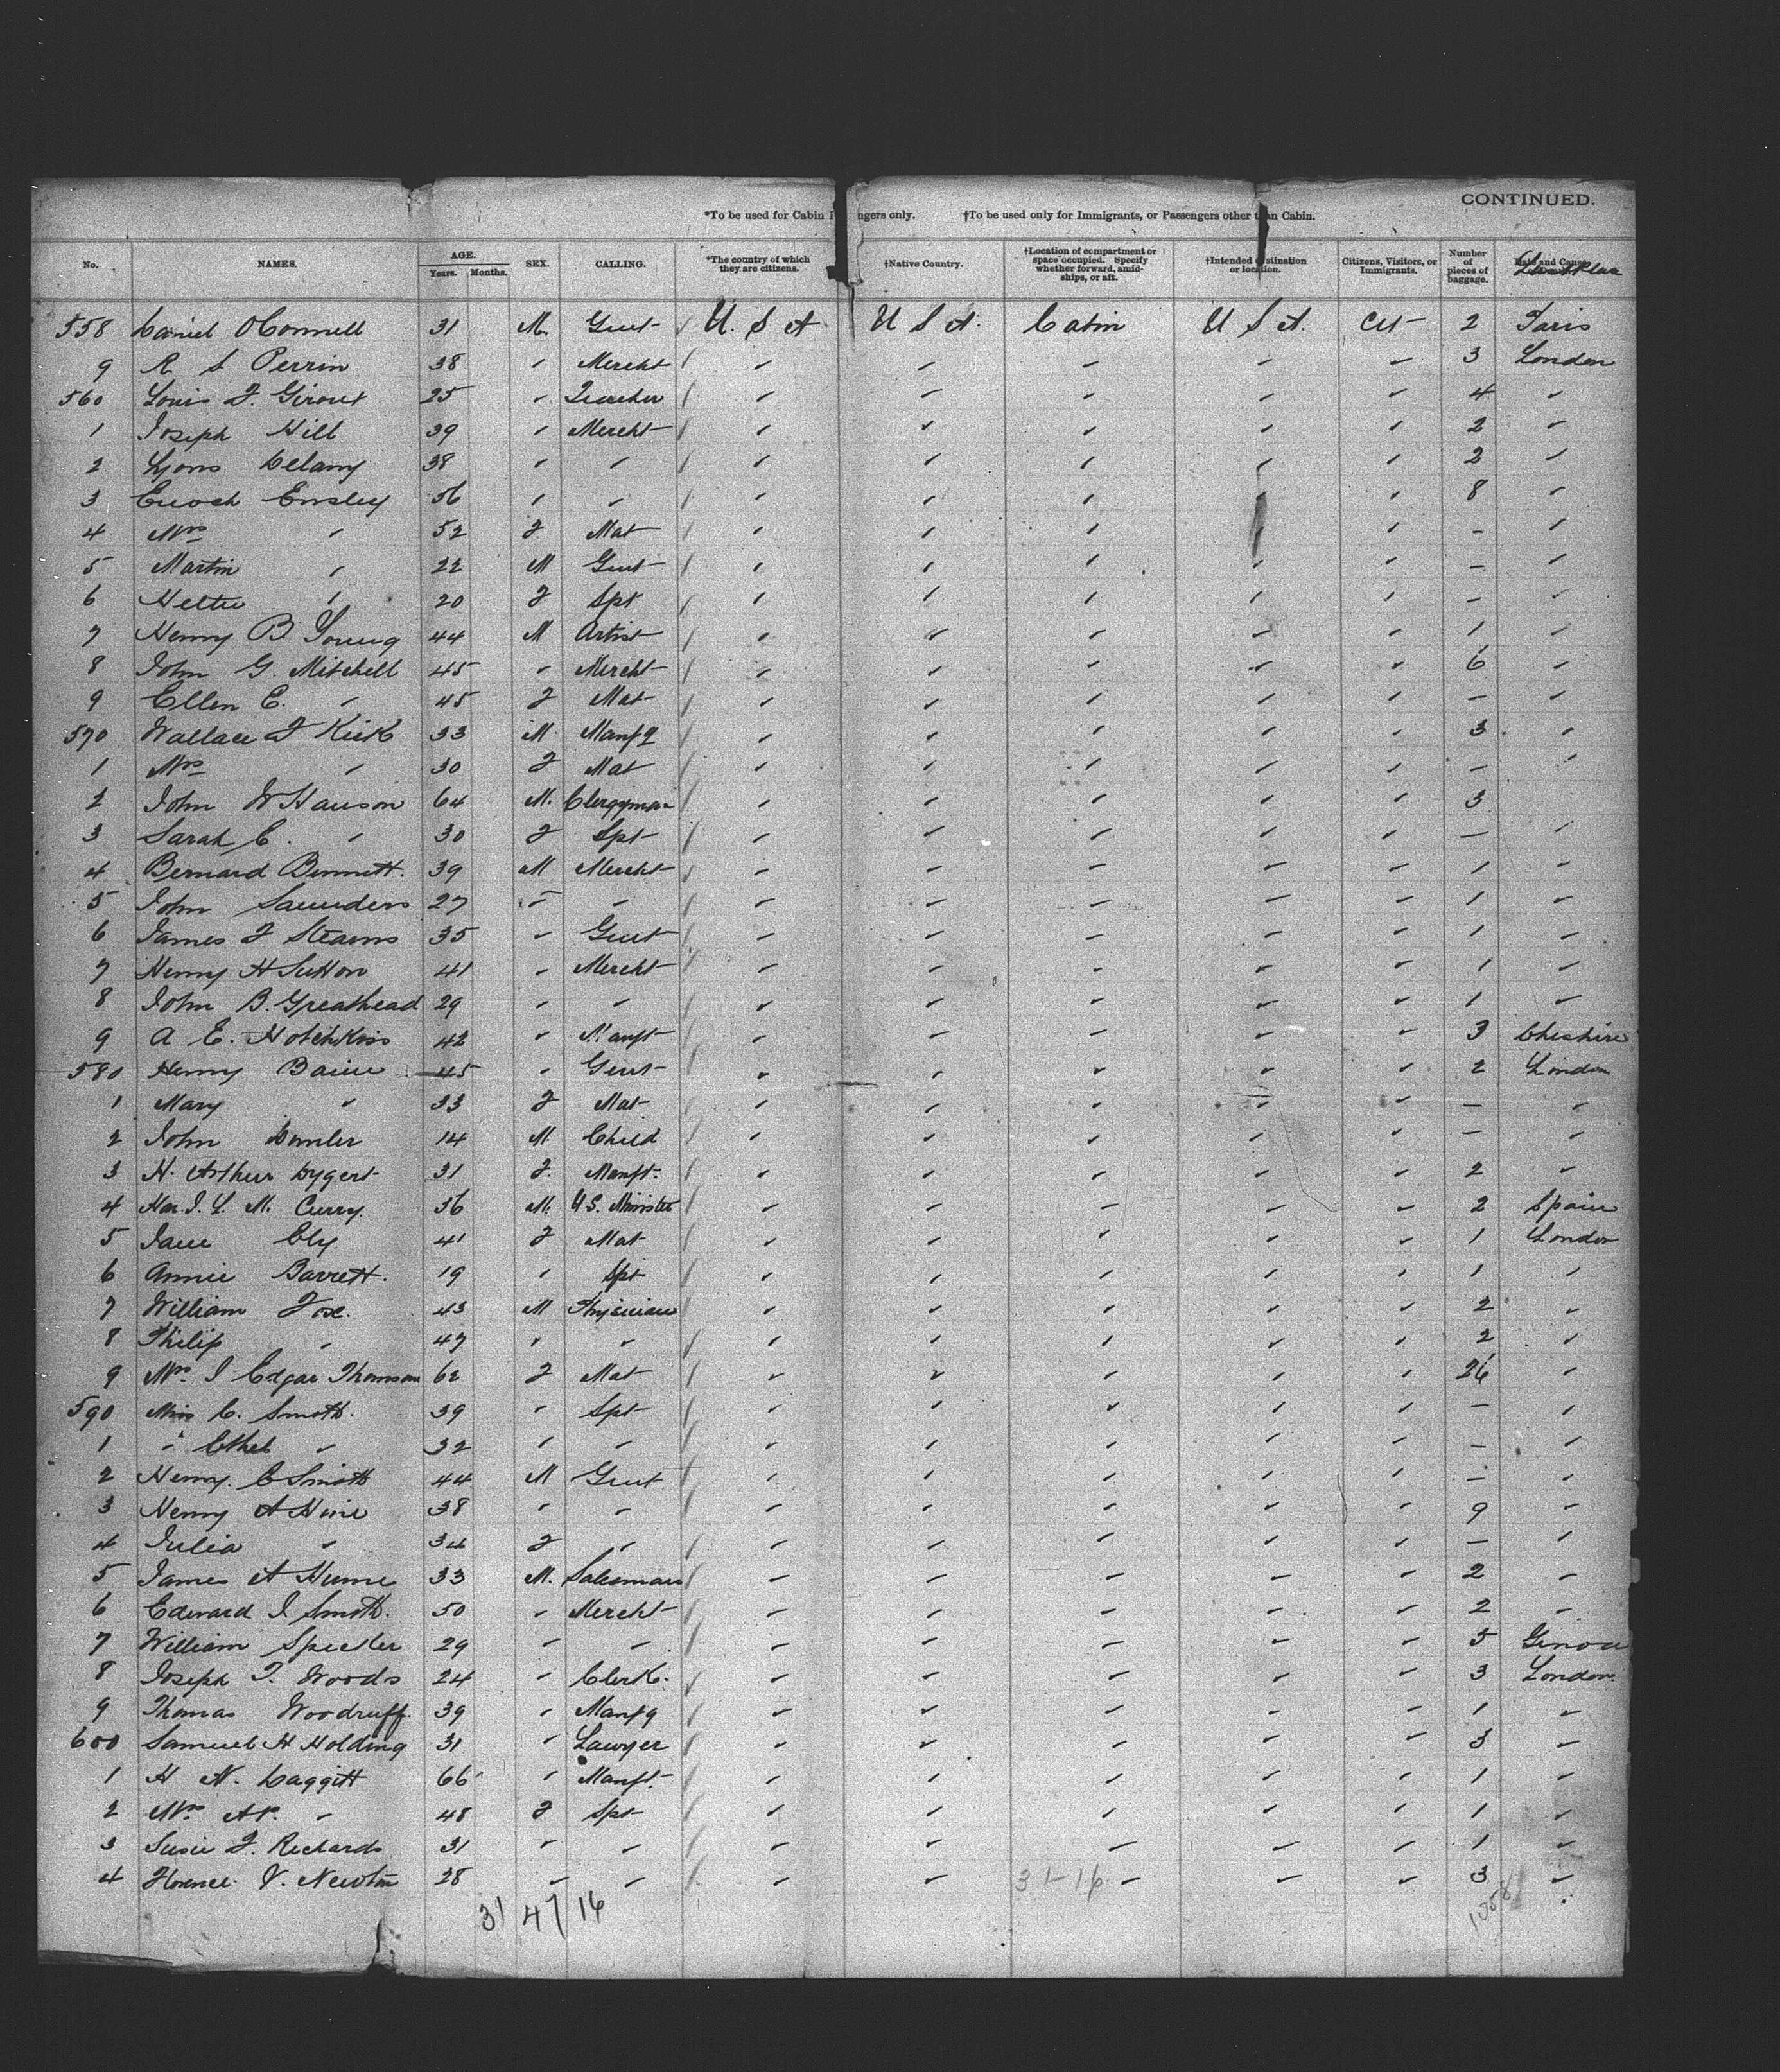 CONTINUED.
*To be used for Cabin P ngers only. †To be used only for Immigrants, or Passengers other t an Cabin.
No. NAMES. AGE. Years. Months. SEX. CALLING. *The country of which they are citizens. †Native Country. †Location of compartment or space occupied. Specify whether forward, amidships, or aft. †Intended stination or location. Citizens, Visitors, or Immigrants. Number of pieces of baggage.
558 Daniel O'Connell 31 M Gent U.S.A U S A. Cabin U S A. Cit 2 Paris
9 R S Perrin 38 " Mercht " " " " " 3 London
560 Louis F. Giroux 25 " Teacher " " " " " 4 "
1 Joseph Hill 39 " Mercht " " " " " 2 "
2 Lyons Delany 38 " " " " " " " 2 "
3 Enoch Ensley 56 " " " " " " 8 "
4 Mrs " 52 F Mat " " " " - "
5 Martin " 22 M Gent " " " " " - "
6 Hettie " 20 F Spt " " " " " - "
7 Henry B Young 44 M Artist " " " " " 1 "
8 John G. Mitchell 45 " Mercht " " " " " 6 "
9 Ellen E. " 45 F Mat " " " " " - "
570 Wallace F Kirk 33 M Manfg " " " " " 3 "
1 Mrs " 30 F Mat " " " " " - "
2 John W Hanson 64 M. Clergyman " " " " " 3
3 Sarah C. " 30 F Spt " " " " " - "
4 Bernard Bennett. 39 M Mercht " " " " " 1 "
5 John Saunders 27 " " " " " " " 1 "
6 James F Stearns 35 " Gent " " " " " 1 "
7 Henry H Sutton 41 " Mercht " " " " " 1 "
8 John B. Greathead 29 " " " " " " " 1 "
9 A E. Hotchkiss 42 " Manft " " " " " 3 Cheshire
580 Henry 45 " Gent " " " " " 2 London
1 Mary " 33 F Mat " " " " " - "
2 John 14 M. Child " " " " " - "
3 H. Arthur Dygert 31 F. Manft. " " " " " 2 "
4 Hon. J. L. M. Curry. 36 M. U.S. Minister " " " " " 2 Spain
5 Jane Ely. 41 F Mat " " " " " 1 London
6 Annie Barrett. 19 " Spt " " " " " 1 "
7 William Fox. 43 M Physician " " " " " 2 "
8 Philip " 47 " " " " " " " 2 "
9 Mrs. J Edgar Thomson 62 F Mat " " " " " 26 "
590 Miss C. Smith. 39 " Spt " " " " " - "
1 " Ethel " 32 " " " " " " " - "
2 Henry. C Smith 44 M Gent " " " " " - "
3 Henry A Hine 38 " " " " " " " 9 "
4 Julia " 34 F " " " " " " - "
5 James A Hume 33 M. Salesman " " " " " 2 "
6 Edward J Smith. 50 " Mercht " " " " " 2 "
7 William 29 " " " " " " " 5 Genoa
8 Joseph T. Woods 24 " Clerk. " " " " " 3 London.
9 Thomas Woodruff. 39 " Manfg " " " " " 1 "
600 Samuel H Holding 31 " Lawyer " " " " " 3 "
1 H N. Daggitt 66 " Manft. " " " " " 1 "
2 Mrs. " 48 F Spt " " " " " 1 "
3 Susie F. Richards 31 " " " " " " " 1 "
4 Florence V. Newton 28 " " " " " " " 3 "
31-16
31 47 16